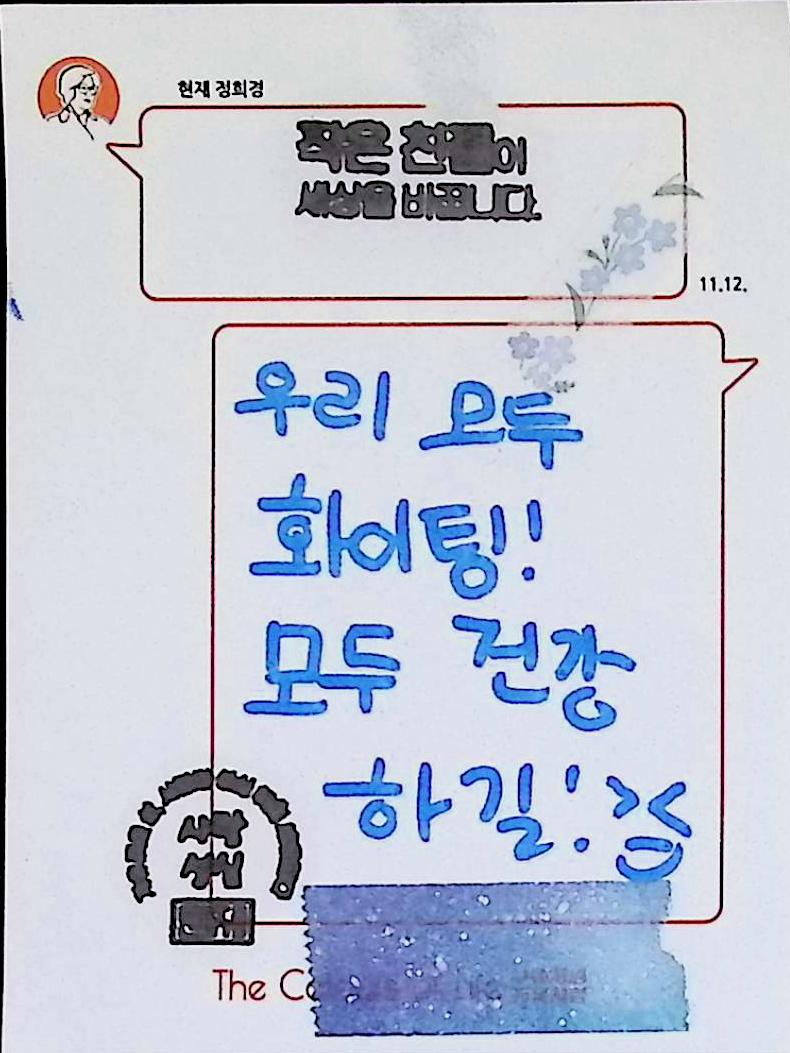 현재 정희경
작은 친절이
세상을 바꿉니다.
11.12.
우리 모두
화이팅!
모두 건강
하길! ><
The